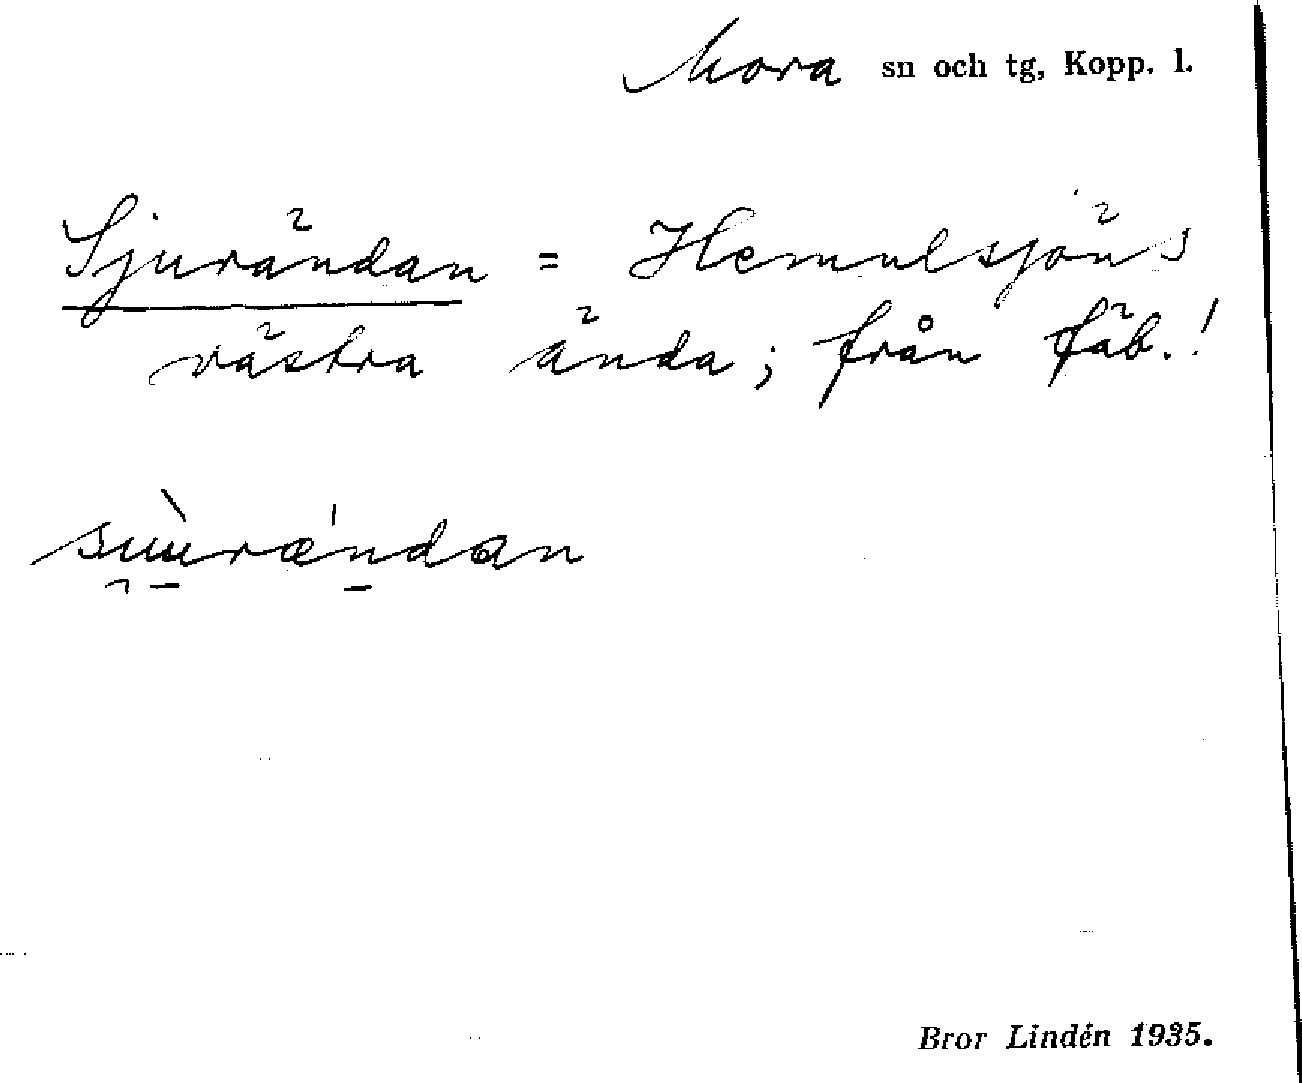 Mora sn och tg, Kopp. l.
Sjurändan = Hemulsjöns
västra ända; från fäb.!
Bror Lindén 1935.